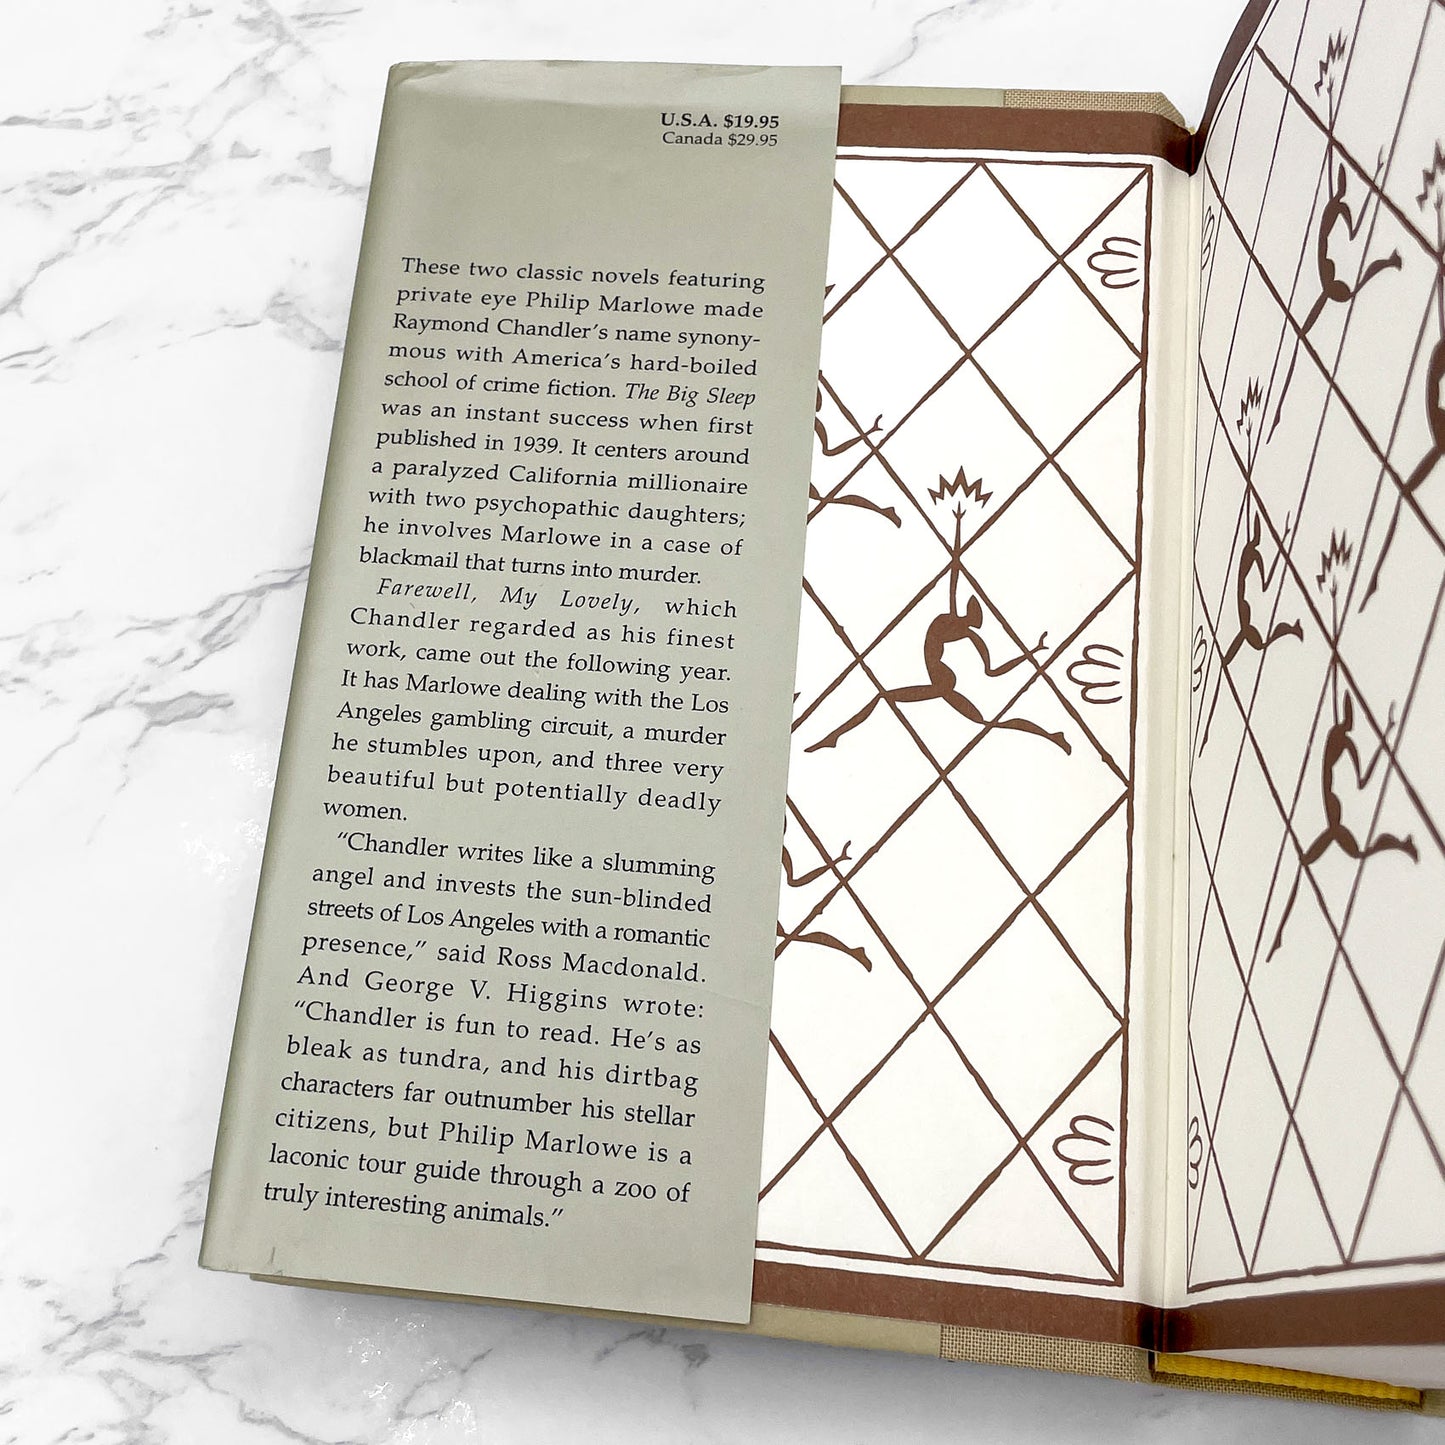 U.S.A. $19.95
Canada $29.95
These two classic novels featuring
private eye Philip Marlowe made
Raymond Chandler's name synony-
mous with America's hard-boiled
school of crime fiction. The Big Sleep
was an instant success when first
published in 1939. It centers around
a paralyzed California millionaire
with two psychopathic daughters;
he involves Marlowe in a case of
blackmail that turns into murder.
Farewell, My Lovely, which
Chandler regarded as his finest
work, came out the following year.
It has Marlowe dealing with the Los
Angeles gambling circuit, a murder
he stumbles upon, and three very
beautiful but potentially deadly
women.
"Chandler writes like a slumming
angel and invests the sun-blinded
streets of Los Angeles with a romantic
presence," said Ross Macdonald.
And George V. Higgins wrote:
"Chandler is fun to read. He's as
bleak as tundra, and his dirtbag
characters far outnumber his stellar
citizens, but Philip Marlowe is a
laconic tour guide through a zoo of
truly interesting animals."